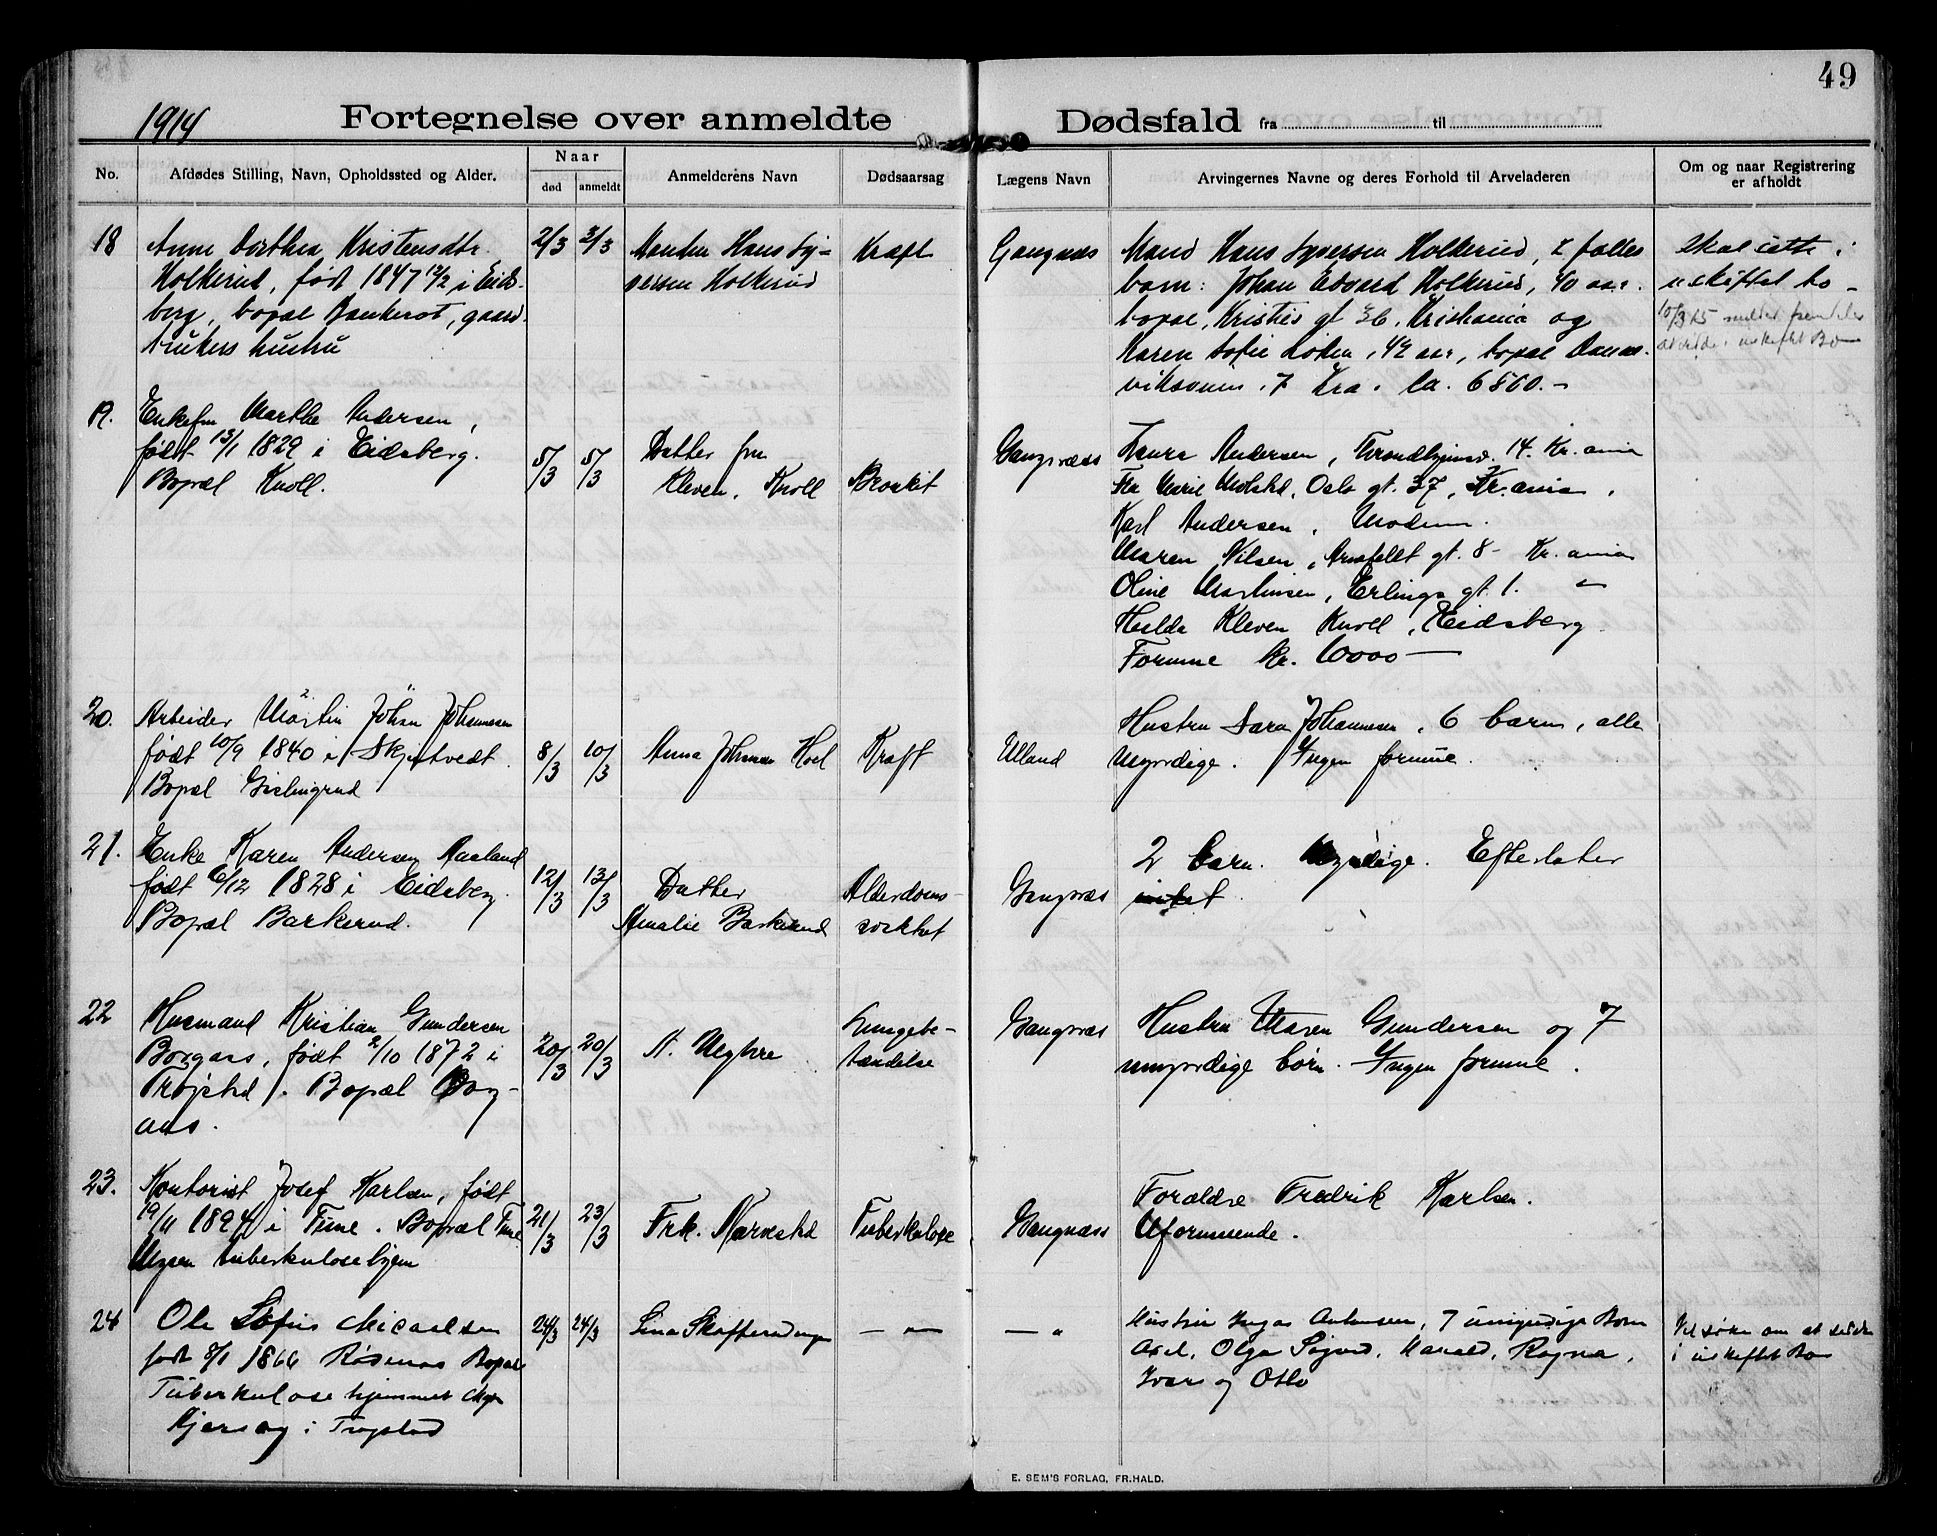 49
1914 Fortegnelse over anmeldte Dødsfald fra til
No.
Afdødes Stilling, Navn, Opholdssted og Alder.
Naar
død
anmeldt
Anmelderens Navn
Dødsaarsag
Lægens Navn
Arvingernes Navne og deres Forhold til Arveladeren
Om og naar Registrering
er afholdt
18
Anne Dorthea Kristensdtr.
Holkerud, født 1847 12/2 i Eids-
berg, bopæl Bankerot, gaard-
brukers hustru
2/3
3/3
Manden Hans Sy-
versen Holkerud
Kræft
Gangnæs
Mand Hans Syversen Holkerud, 2 fælles
barn: Johan Edvard Holkerud, 40 aar.
bopæl, Kristies gt 36, Kristiania og
Karen Sofie, 42 aar, bopæl
7 Kra. Ca. 6500.-
Skal sitte i
uskiftet bo -
10/3 15
i uskiftet Bo
19.
Enkefru Marthe Andersen,
født 13/1 1829 i Eidsberg.
Bopæl Knoll.
5/3
5/3
Datter fru
Kleven, Knoll
Gangnæss
Laura Andersen, Trondhjemsv. 14. Kr.ania
Fru Marie Molstad, Oslo gt. 37, Kr.ania,
Karl Andersen, Modum.
Maren Nilsen, Armfeldt gt. 8 - Kr.ania
Oline Martinsen, Erlings gt. 1. "
Hulda Kleven Knoll, Eidsberg.
Formue kr. 6000 -
20.
Arbeider Martin Johan Johannesen
født 10/9 1840 i Skiptvedt.
Bopæl Gislingrud
8/3
10/3
Anna Johansen Hoel
Kræft
Ulland
Hustru Sara Johannesen, 6 barn, alle
myndige. Ingen formue.
21.
Enke Karen Andersen Aasland
født 6/12 1828 i Eidsberg.
Bopæl Barkerud.
12/3
13/3
Datter
Amalie Barkerud
Alderdoms-
svakhet
Gangnæs
2 barn. Myndige. Efterlater
intet
22
Husmand Kristian Gundersen
Borgaas, født 2/10 1872 i
Trøgstad. Bopæl Borg-
aas.
20/3
20/3
N.
Lungebe-
tændelse
Gangnæs
Hustru Maren Gundersen og 7
umyndige børn. Ingen formue.
23.
Kontorist Josef Karlsen, født
19/11 1894 i Tune. Bopæl Tune
Mysen tuberkulosehjem
21/3
23/3
Frk. Narvestad
Tuberkulose
Gangnæss
Forældre Fredrik Karlsen.
Uformuende.
24
Ole Sofus Micaelsen
født 8/1 1866 Rødenæs Bopæl
Tuberkulosehjemmet
i Trøgstad
24/3
24/3
Lina
— " —
— "
Hustru 7 umyndige Børn
Axel, Olga Sigurd, Harald, Ragna,
Ivar og Otto
Vil søke om at sidde
i uskiftet Bo
E. SEM'S FORLAG, FR.HALD.